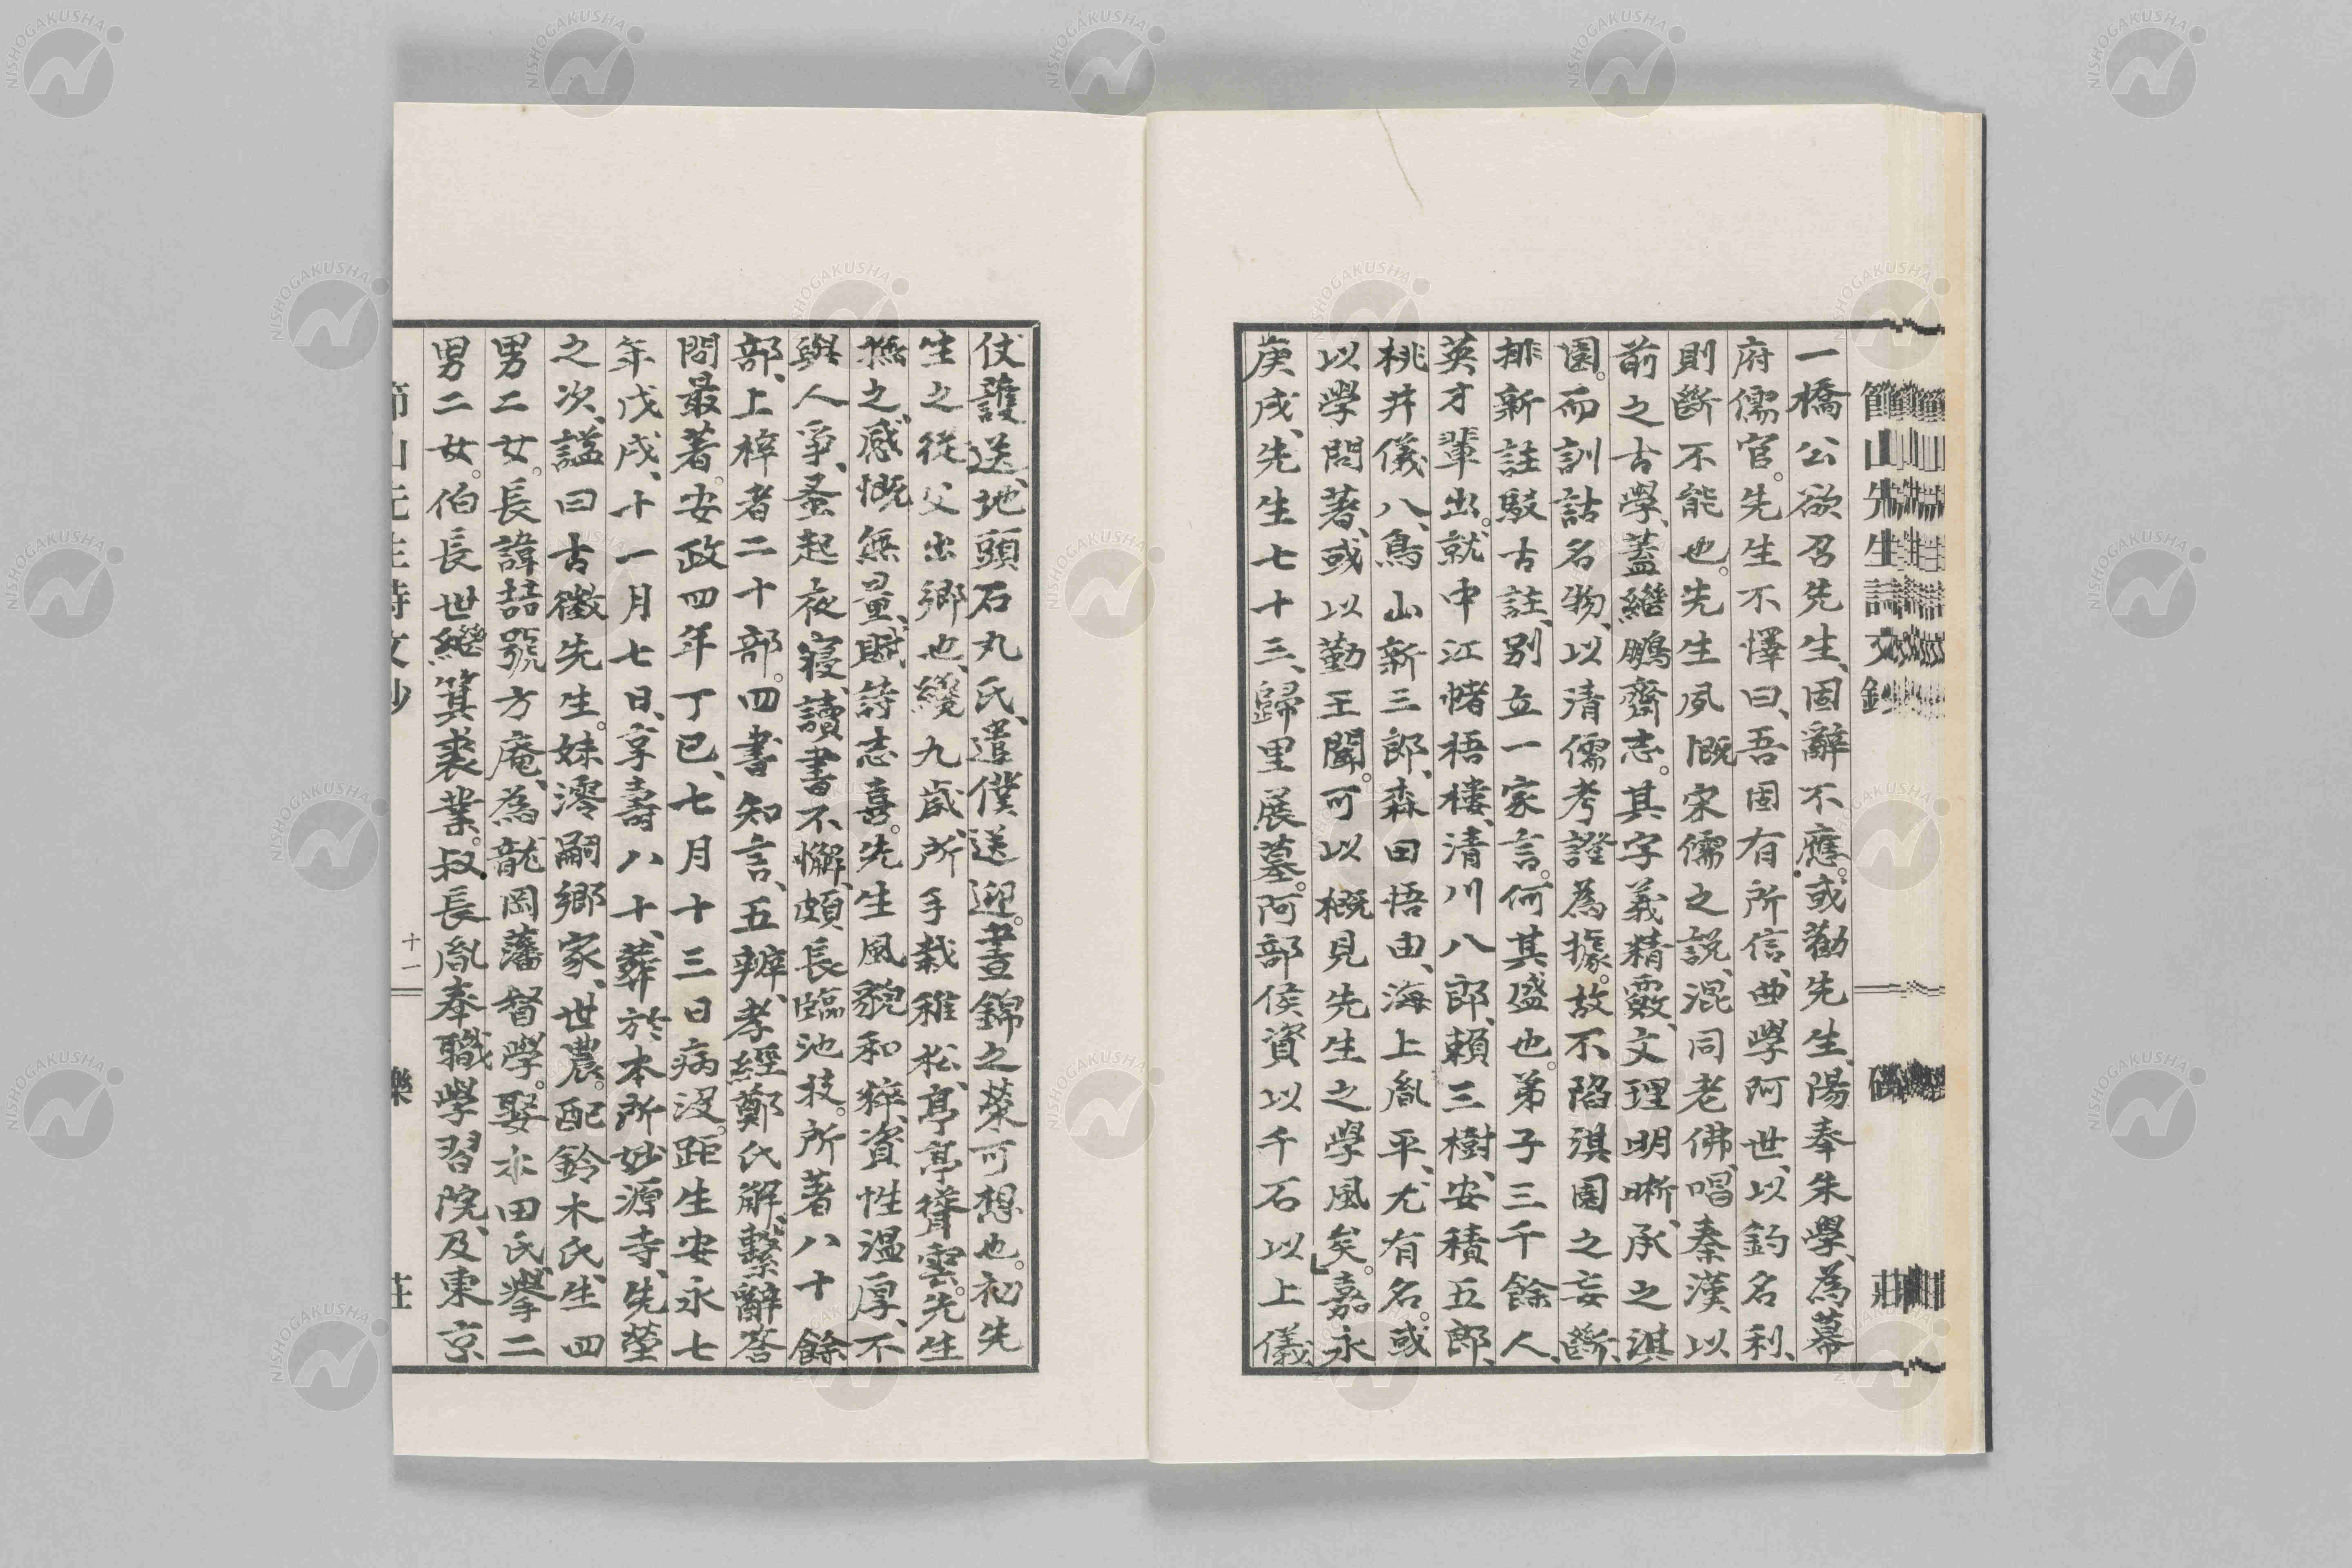 節山先生詩文鈔
樂
莊
一橋公欲召先生、固辭不應。或勸先生、陽奉朱學、為幕
府儒官。先生不懌曰、吾固有所信、曲學阿世、以釣名利、
則斷不能也。先生夙慨宋儒之説、混同老佛、唱秦漢以
前之古學、蓋繼鵬齋志。其字義精覈、文理明晰、承之淇
園。而訓詁名物、以清儒考證為據。故不陷淇園之妄斷、
排新註駁古註、別立一家言。何其盛也。弟子三千餘人、
英才輩出。就中江幡梧樓、清川八郎、賴三樹、安積五郎、
桃井儀八、鳥山新三郎、森田悟由、海上胤平、尤有名。或
以學問著、或以勤王聞。可以概見先生之學風矣。」嘉永
庚戌、先生七十三、歸里展墓。阿部侯資以千石以上儀
仗護送、地頭石丸氏、遣僕送迎。晝錦之榮可想也。初先
生之從父出鄉也、纔九歲、所手栽稚松、亭亭聳雲。先生
撫之、感慨無量、賦詩志喜。先生風貌和粹、資性溫厚、不
與人爭、蚤起夜寢、讀書不懈、頗長臨池技。所著八十餘
部、上梓者二十部。四書知言、五辨、孝經鄭氏解、繫辭答
問最著。安政四年丁巳、七月十三日病沒。距生安永七
年戊戌、十一月七日、享壽八十、葬於本所妙源寺、先塋
之次、謚曰古徵先生。妹澪嗣鄉家、世農。配鈴木氏、生四
男二女。長諱喆號方庵、為龍岡藩督學。娶水田氏、擧二
男二女。伯長世繼箕裘業。叔長胤奉職學習院、及東京
節山先生詩文鈔
十一
樂
莊
NISHOGAKUSHA